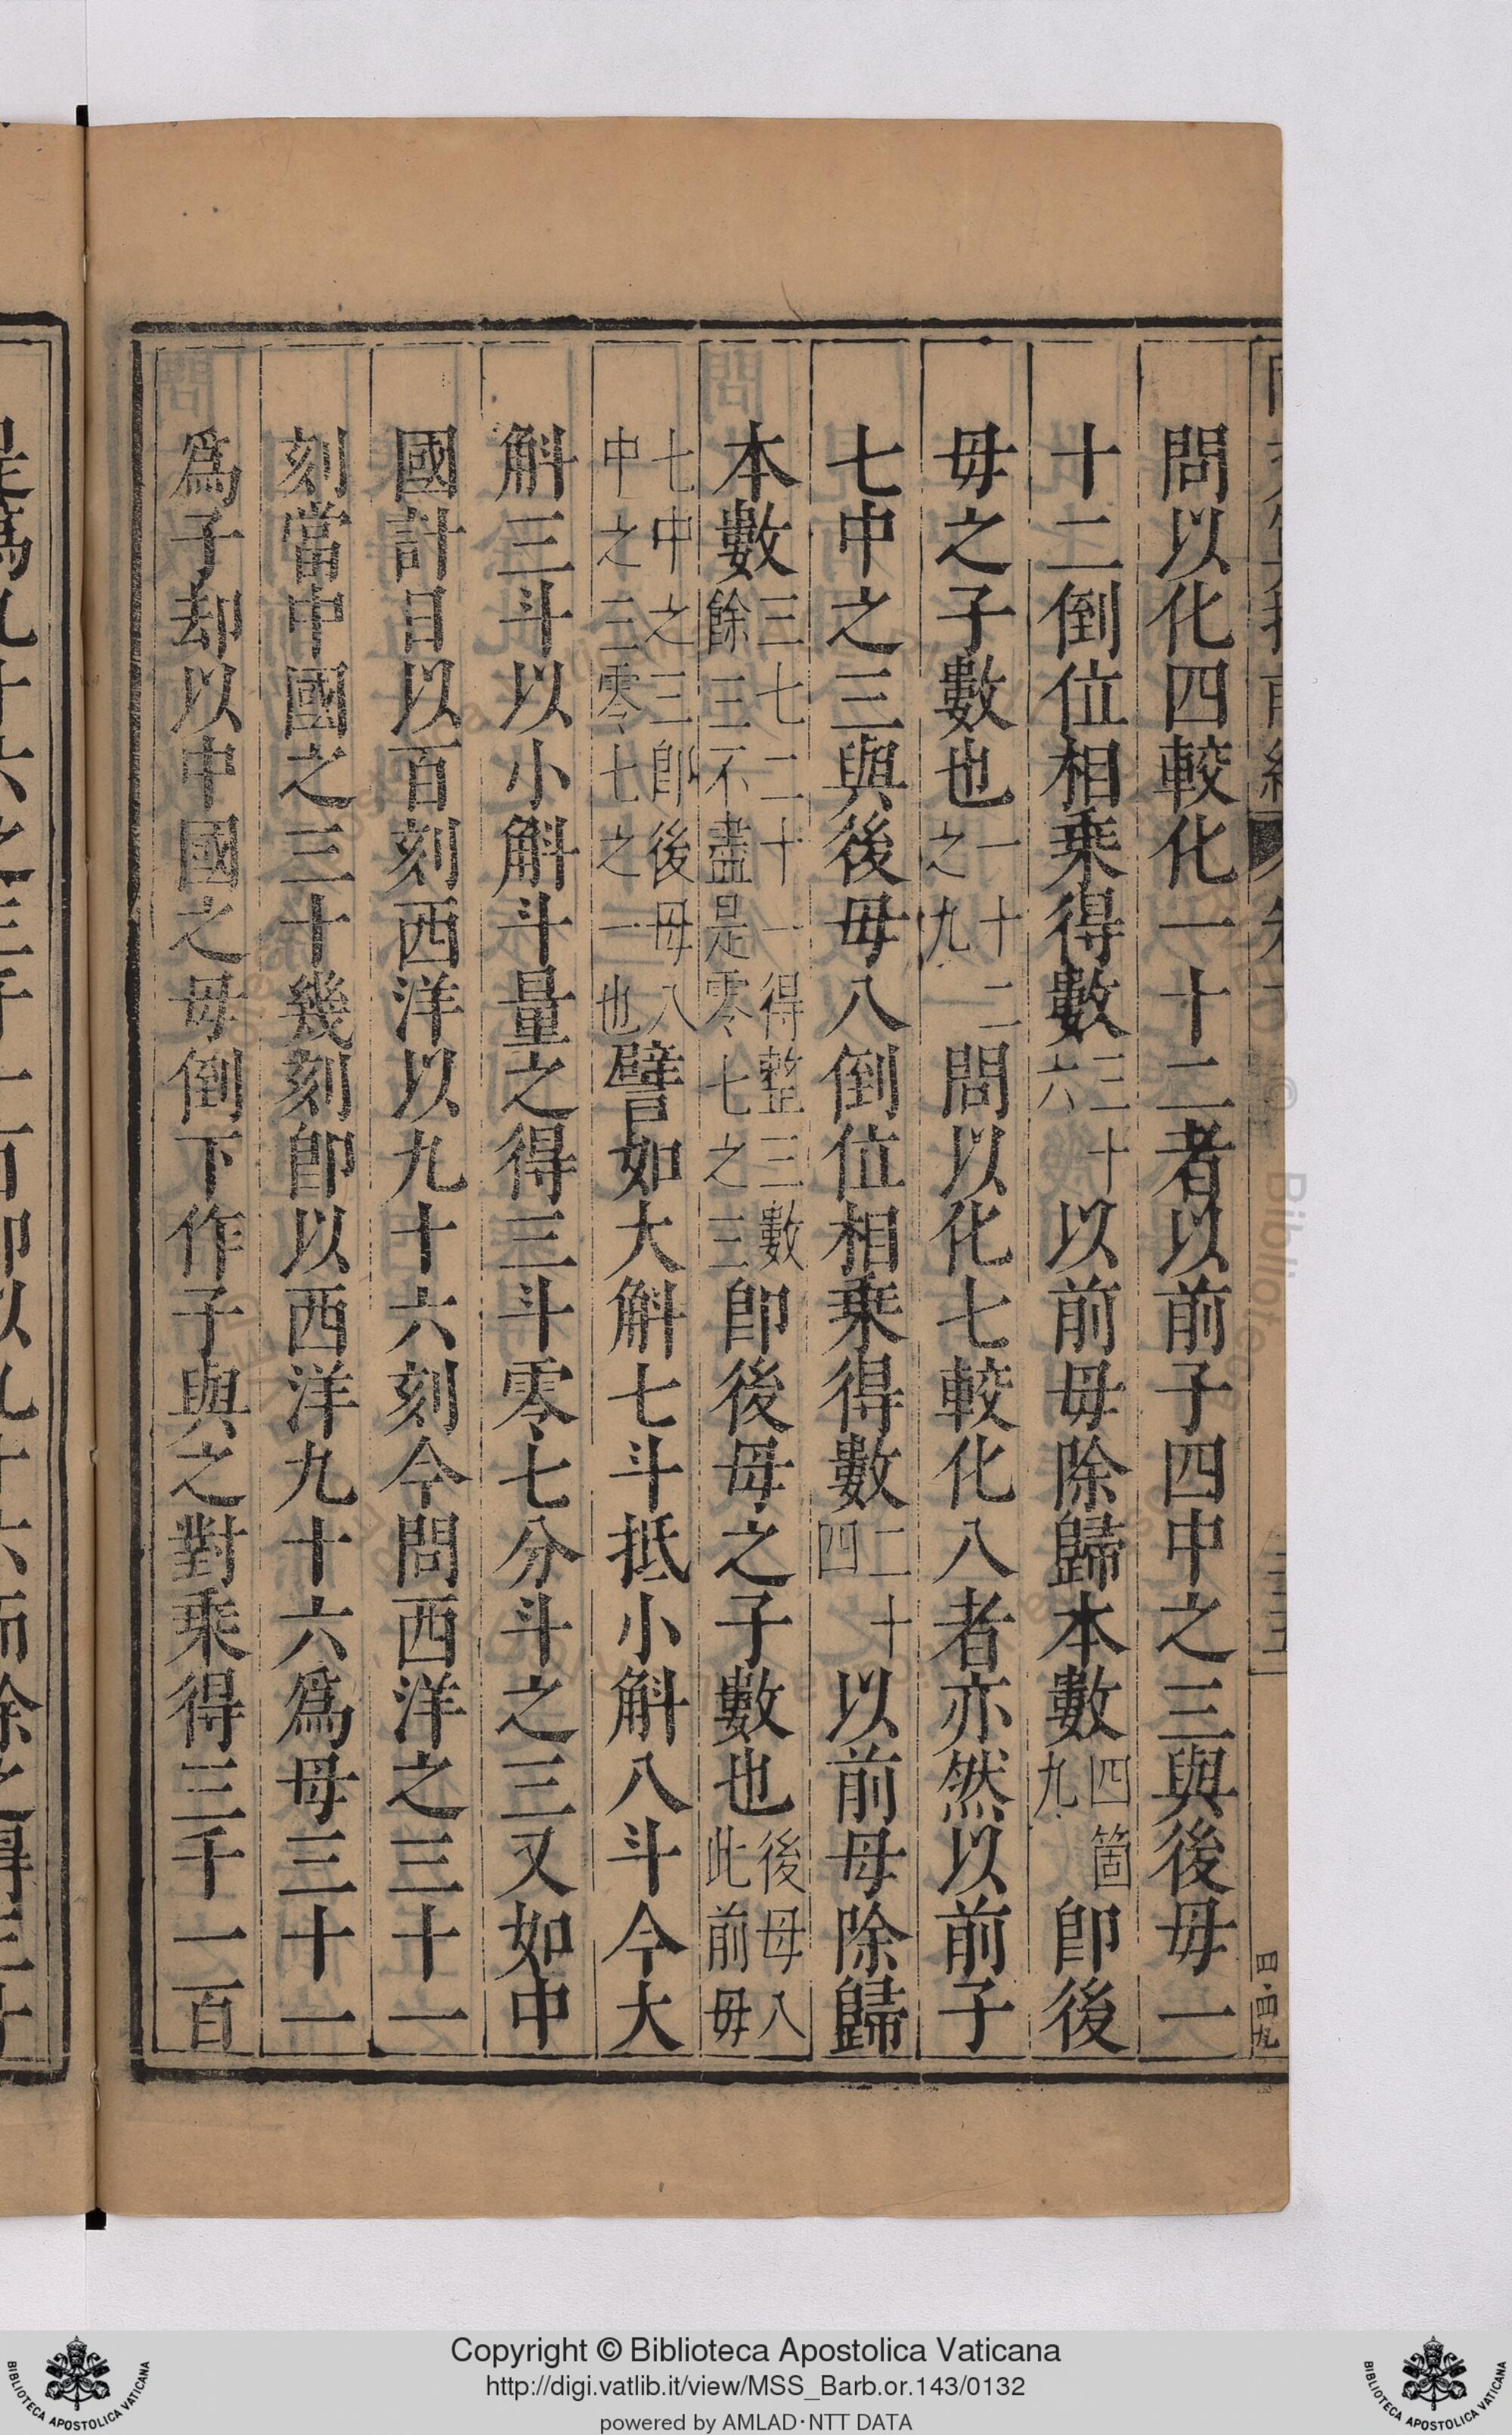 問以化四較化一十二者以前子四中之三與後毋一
十二倒位相乘得數三十六以前毋除歸本數四箇九即後
毋之子數也一十二之九問以化七較化八者亦然以前子
七中之三與後毋八倒位相乘得數二十四以前毋除歸
本數三七二十一得整三數餘三不盡是零七之三即後毋之子數也後毋八此前毋
七中之三即後毋八中之三零七之一也譬如大斛七斗抵小斛八斗今大
斛三斗以小斛斗量之得三斗零七分斗之三又如中
國計日以百刻西洋以九十六刻今問西洋之三十一
刻當中國之三十幾刻即以西洋九十六爲母三十一
爲子却以中國之毋倒下作子與之對乘得三千一百
四·四九
Copyright © Biblioteca Apostolica Vaticana
http://digi.vatlib.it/view/MSS_Barb.or.143/0132
powered by AMLAD·NTT DATA
BIBLIOTECA APOSTOLICA VATICANA
BIBLIOTECA APOSTOLICA VATICANA